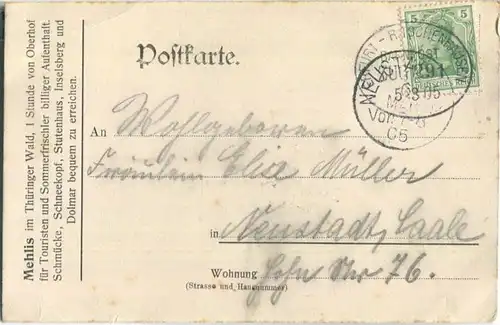 Mehlis im Thüringer Wald, 1 Stunde von Oberhof
für Touristen und Sommerfrischler billiger Aufenthalt.
Schmücke, Schneekopf, Stutenhaus, Inselsberg und
Dolmar bequem zu erreichen.
Postkarte.
5 5
5 8 05
An Wohlgeboren
Fräulein Elia Müller
in Neustadt, Saale
Wohnung Hohn Str 76.
(Strasse und Hausnummer)